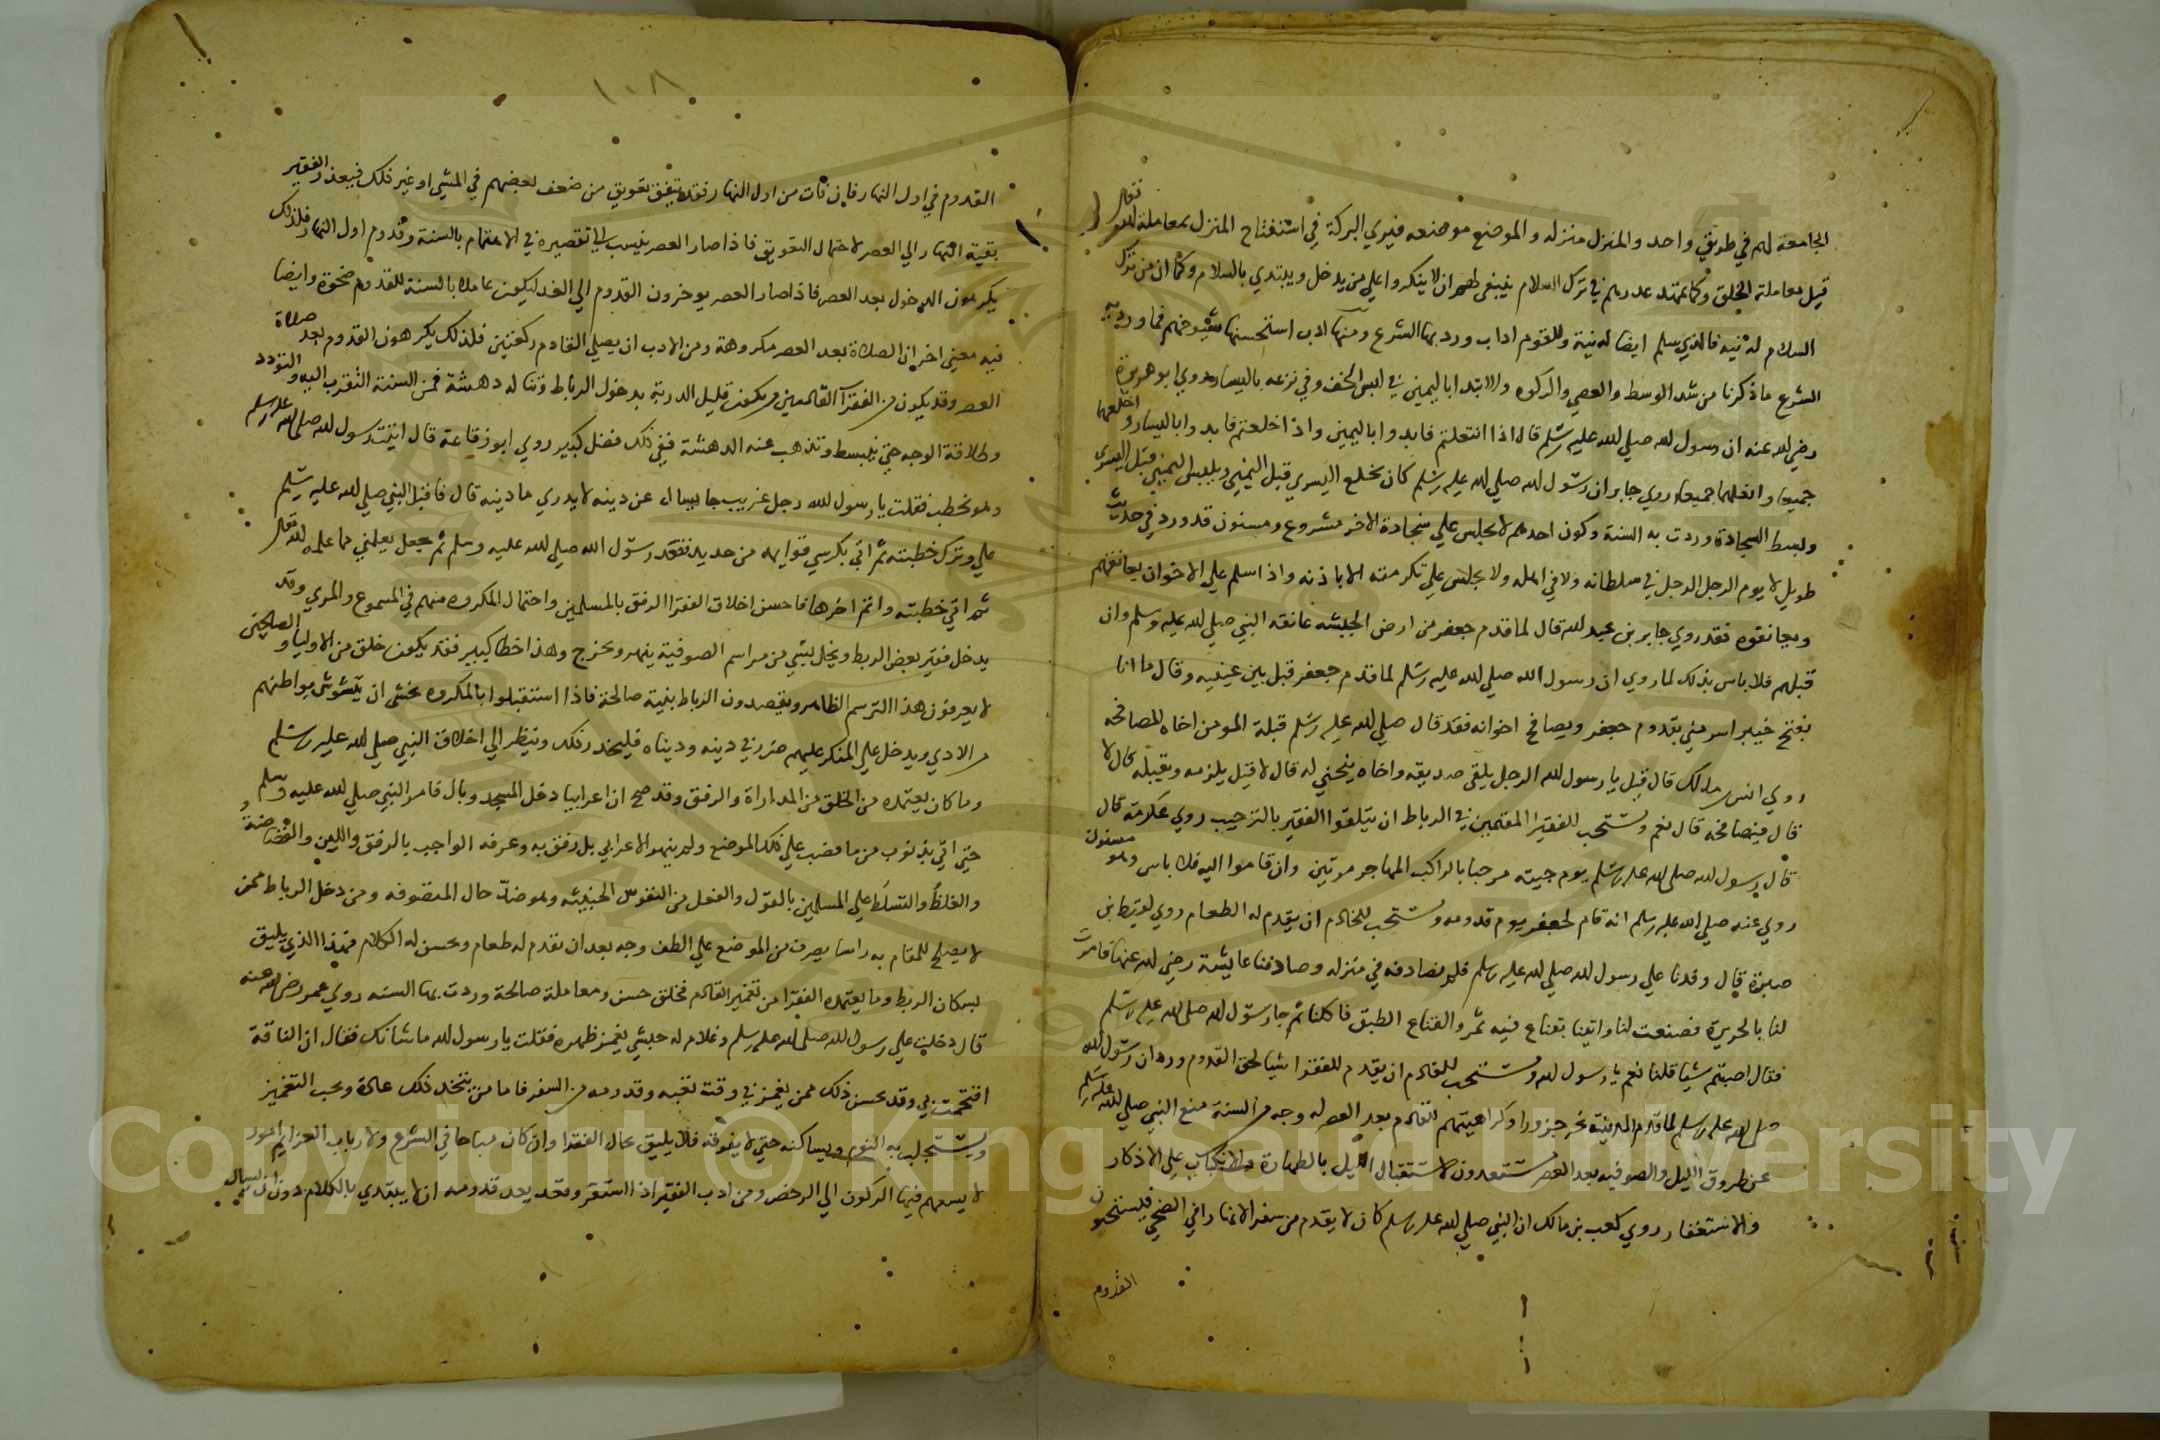 الجامعة لهم في طريق واحد والمنزل منزله والموضع موضعه فيري البركة في استفتاح المنزل بمعاملة الله تعالى
قبل معاملة الخلق وكما يمتهد عذرهم في ترك السلام ينبغي لهم ان لا ينكروا علي من يدخل ويبتدي بالسلام وكما ان من ترك
السلام له نية فالذي سلم ايضا له نية وللقوم اداب ورد بها الشرع ومنها ادب استحسنها شيوخهم فما ورد به
الشرع ما ذكرنا من شد الوسط والعصي والركوه والابتدا باليمين في لبس الخف وفي نزعه باليسار روي ابو هريرة
رضي لله عنه ان رسول لله صلي لله عليه وسلم قال اذا انتعلتم فابدوا باليمين واذا خلعتم فابدوا باليسار واخلعهما
جميعا وانعلهما جميعا روي جابر ان رسول لله صلي لله عليه وسلم كان يخلع اليسري قبل اليمني ويلبس اليمني قبل اليسري
وبسط السجادة وردت به السنة وكون احدهم لا يجلس علي سجادة الاخر مشروع ومسنون قد ورد في حديث
طويل لا يوم الرجل الرجل في سلطانه ولا في اهله ولا يجلس علي تكرمته الا باذنه واذا سلم علي الاخوان يعانقهم
ويعانقوه فقد روي جابر بن عبد لله قال لما قدم جعفر من ارض الحبشه عانقه النبي صلي لله عليه وسلم وان
قبلهم فلا باس بذلك لما روي ان رسول الله صلي لله عليه وسلم لما قدم جعفر قبل بين عينيه وقال ما انا
بفتح خيبر اسر مني بقدوم جعفر ويصافح اخوانه فقد قال صلي لله عليه وسلم قبلة المومن اخاه المصافحه
روي انس بن مالك قال قيل يا رسول لله الرجل يلقي صديقه واخاه ينحني له قال لا قيل يلزمه ويقبله قال لا
قال فيصافحه قال نعم ويستحب للفقرا المقيمين في الرباط ان يتلقوا الفقير بالترحيب روي عكرمة قال
قال رسول لله صلي لله عليه وسلم يوم جيته مرحبا بالراكب المهاجر مرتين وان قاموا اليه فلا باس وهو مسنون
روي عنه صلي الله عليه وسلم انه قام لجعفر يوم قدومه ويستحب للخادم ان يقدم له الطعام روي لقيط بن
صبرة قال وفدنا علي رسول لله صلي لله عليه وسلم فلم نصادفه في منزله وصادفنا عايشة رضي لله عنها فامرت
لنا بالحريرة فصنعت لنا واتينا بقناع فيه تمر والقناع الطبق فاكلنا ثم جا رسول لله صلي لله عليه وسلم
فقال اصبتم شيا قلنا نعم يا رسول لله ويستحب للقادم ان يقدم للفقرا شيا لحق القدوم ورد ان رسول لله
صلي لله عليه وسلم لما قدم المدينة نحر جزورا وكراهيتهم للقادم بعد العصر له وجه من السنة منع النبي صلي لله عليه وسلم
عن طروق الليل والصوفيه بعد العصر يستعدون لاستقبال الليل بالطهارة والانكباب علي الاذكار
والاستغفار روي كعب بن مالك ان النبي صلي لله عليه وسلم كان لا يقدم من سفر الا نهارا في الضحي فيستحبون
القدوم
١٠٨
القدوم في اول النهار فان فات من اول النهار فقد يتفق تعويق من ضعف بعضهم في المشي او غير ذلك فيعذر الفقير
بقية النهار الي العصر لاحتمال التعويق فاذا صار العصر ينسب الي تقصيره في الاهتمام بالسنة وقدوم اول النهار فلذلك
يكرهون الدخول بعد العصر فاذا صار العصر يوخرون القدوم الي الغد ليكون عاملا بالسنة للقدوم ضحوة وايضا
فيه معني اخر ان الصلاة بعد العصر مكروهة ومن الادب ان يصلي القادم ركعتين فلذلك يكرهون القدوم بعد صلاة
العصر وقد يكون من الفقرآ القادمين من يكون قليل الدربة بدخول الرباط وتناله دهشة فمن السنة التقرب اليه والتودد
وطلاقة الوجه حتي ينبسط وتذهب عنه الدهشة ففي ذلك فضل كبير روي ابو رفاعة قال اتيت رسول لله صلي لله عليه وسلم
وهو يخطب فقلت يا رسول لله رجل غريب جا يسال عن دينه لا يدري ما دينه قال فاقبل النبي صلي لله عليه وسلم
علي وترك خطبته ثم اتي بكرسي قوايمه من حديد فقعد رسول الله صلي لله عليه وسلم ثم جعل يعلمني مما علمه لله تعالى
ثم اتي خطبته واتم اخرها فاحسن اخلاق الفقرا الرفق بالمسلمين واحتمال المكروه منهم في المسموع والمري وقد
يدخل فقير بعض الربط ويخل بشي من مراسم الصوفية ينهر ويخرج وهذا خطا كبير فقد يكون خلق من الاوليا والصالحين
لا يعرفون هذا الترسم الظاهر ويقصدون الرباط بنية صالحة فاذا استقبلوا بالمكروه يخشي ان يتشوش مواطنهم
من الاذي ويدخل علي المنكر عليهم ضرر في دينه ودنياه فليحذر ذلك وينظر الي اخلاق النبي صلي لله عليه وسلم
وما كان يعتمده من الخلق من المداراة والرفق وقد صح ان اعرابيا دخل المسجد وبال فامر النبي صلي لله عليه وسلم
حتي اتي بذنوب من ما فصب علي ذلك الموضع ولم ينهر الاعرابي بل رفق به وعرفه الواجب بالرفق واللين والفظاظة و
والغلظ والتسلط علي المسلمين بالقول والفعل من النفوس الخبيثه وهو ضد حال المتصوفه ومن دخل الرباط ممن
لا يصلح للمقام به راسا يصرف من الموضع علي الطف وجه بعد ان يقدم له طعام ويحسن له الكلام فهذا الذي يليق
بسكان الربط وما يعتمده الفقرا من تغميز القادم فخلق حسن ومعاملة صالحة وردت بها السنه روي عمر رضي لله عنه
قال دخلت علي رسول لله صلي لله عليه وسلم وغلام له حبشي يغمز ظهره فقلت يا رسول لله ما شانك فقال ان الناقة
اقتحمت بي وقد يحسن ذلك ممن يغمز في وقت تعبه وقدومه من السفر فاما من يتخذ ذلك عادة ويحب التغميز
ويستجلب به النوم ويساكنه حتي لا يفوته فلا يليق بحال الفقرا وان كان مباحا في الشرع ولارباب العزايم امور
لا يسعهم فيها الركون الي الرخص ومن ادب الفقير اذا استقر وقعد بعد قدومه ان لا يبتدي بالكلام دون ان يسال
Copyright © King Saud University